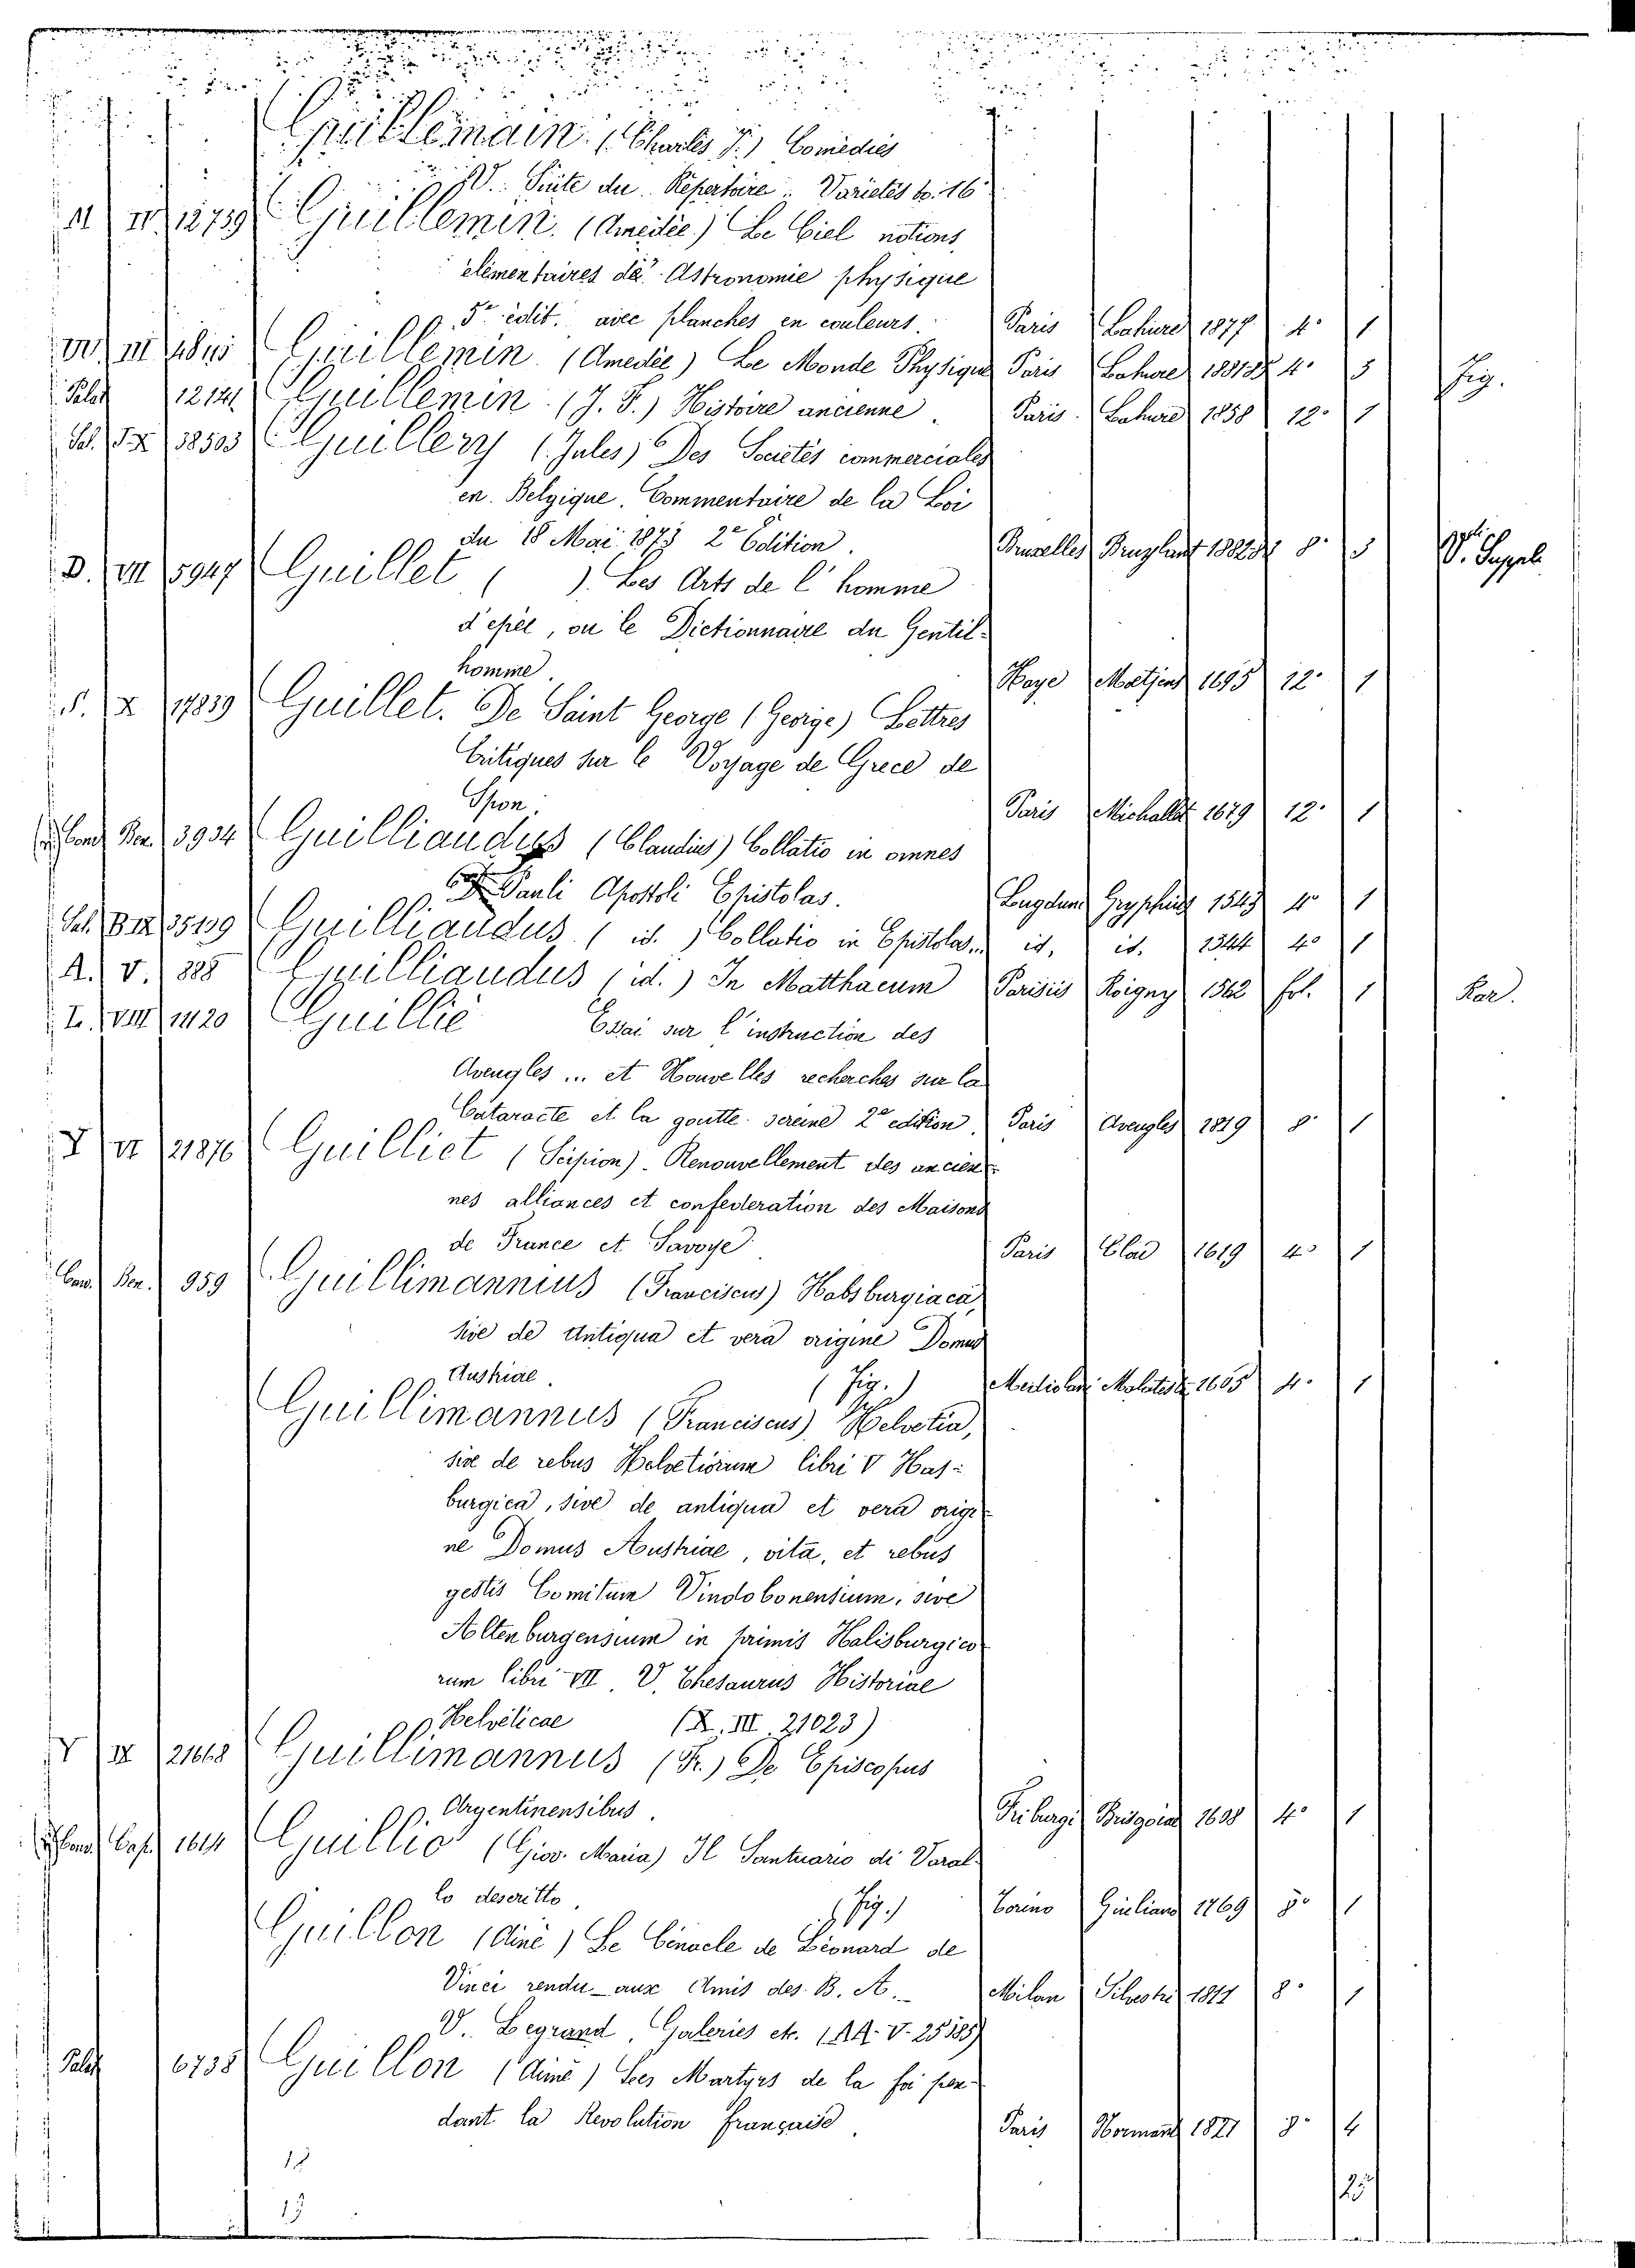 Guillemain. (Charles J.) Comedies
V. Suite du Repertoire. Varietés to. 16
M IV. 12739 Guillemin. (Amedée.) Le Ciel notions
elémentaires de Astronomie physique
5e edit. avec planches en couleurs. Paris Lahure 1877 4° 1
W. III Guillemin. (Amedée) Le Monde Physique Paris Lahure 4° 5 Fig.
Palat 12141 Guillemin. (J. J.) Histoire ancienne. Paris. Lahure 1858 12° 1
Sal. IX 38503 Guillery (Jules) Des Societés commerciales
en Belgique. Commentaire de la Loi
du 18 Mai 1873 2e Edition. Bruxelles 8° 3 V. Suppl.
D. VII 5947 Guillet ( ). Les Arts de l'homme
d'epée, ou le Dictionnaire du Gentil-
homme. Haye Moetjens 1695 12° 1
S. X 17839 Guillet. De Saint George (George) Lettres
Critiques sur le Voyage de Grece de
Spon. Paris Michallet 1679 12° 1
Ben. 3934 Guilliaudus (Claudius) Collatio in omnes
Pauli Apostoli Epistolas. Lugdun Gryphius 1543 4° 1
Sal. B IX 35139 Guilliaudus (id.) Collatio in Epistolas. id. id. 1544 4° 1
A. V. 888 Guilliaudus (id.) In Matthaeum Parisiis Roigny 1562 fol. 1 Rar.
L. VIII 11120 Guillié Essai sur l'instruction des
Avengles ... et Nouvelles recherches sur la
Cataracte et la goutte sereine 2e edition. Paris Avengles 1819 8° 1
Y VI 21876 Guilliet (Scipion). Renouvellement des ancien-
nes alliances et confederation des Maisons
de France et Savoye Paris 1619 4° 1
Ben. 959 Guillimannius (Franciscus) Habsburgiaca,
sive de Antiqua et vera origine Domus
Austriae. (Fig.) Mediolani Malatesta 1605 4° 1
Guillimannus (Franciscus) Helvetia,
sive de rebus Helvetiorum libri V Has-
burgica, sive de antiqua et vera origi-
ne Domus Austriae, vita, et rebus
gestis Comitum Vindobonensium, sive
Altenburgensium in primis Halisburgico-
rum libri VII. V. Thesaurus Historiae
Helvéticae (X. III. 21023)
Y IX 21668 Guillimannus (Fr.) De Episcopus
Argentinensibus. Friburgi Brisgoiae 1608 4° 1
1614 Guillio (Giov. Maria) Il Santuario di Varal-
lo descritto (Fig.) Torino Giuliano 1769 8° 1
Guillon (Aimé) Le Cénacle de Léonard de
Vinci rendu aux Amis des B. A. Milan Silvestri 1811 8° 1
V. Legrand, Galeries etc. (AA. V. 25385)
Palat 6738 Guillon (Aimé) Les Martyrs de la foi pen-
dant la Revolution française. Paris Normant 1821 8° 4
12
13 25